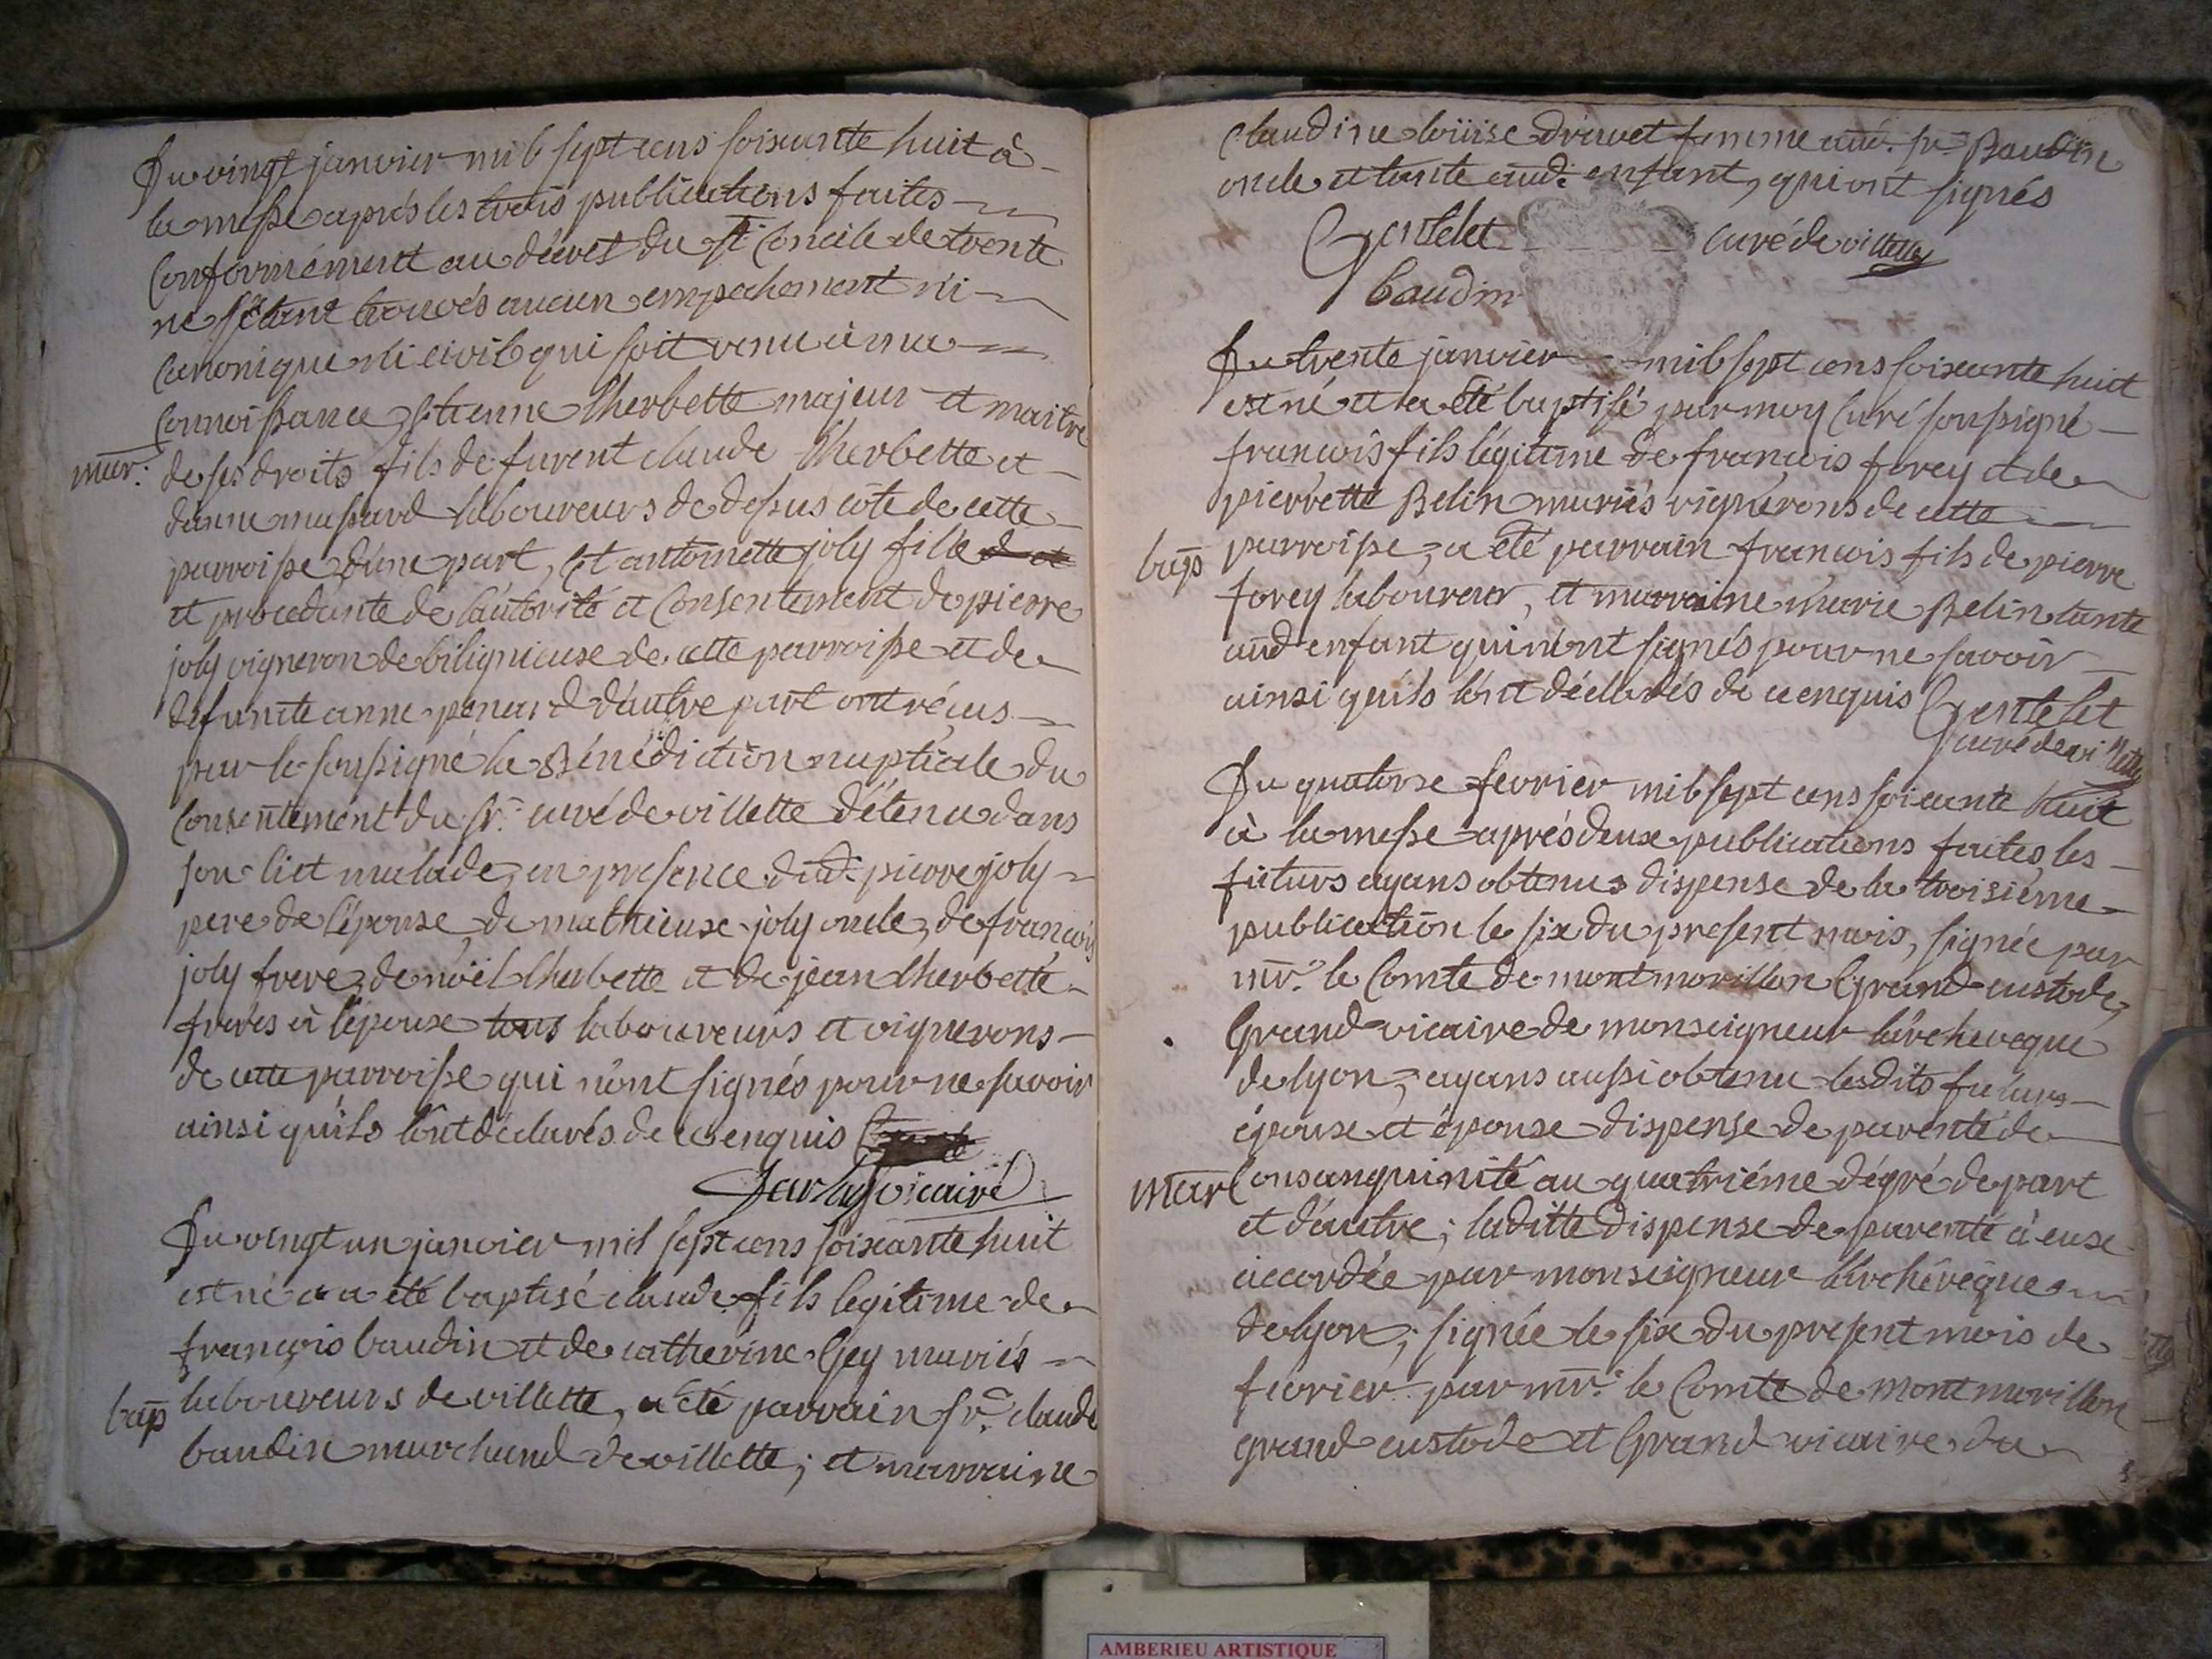 Du vingt janvier mil sept cens soixante huit à
la messe après les trois publications faites
Conformément au décret du st. Concile de trente
ne s'étant trouvés aucun empechement ni
canonique ni civil qui soit venu à ma
connoissance, Etienne lherbette majeur et maitre
mar. de ses droits fils de furent claude lherbette et
danne musard laboureurs de dessus côte de cette
parroisse d'une part, Et antoinette joly fille
et procedante de l'autorité et Consentement de pierre
joly vigneron de bilignieuse de cette parroisse et de
defunte anne d'autre part ont réçus
par le soussigné la Bénédiction nuptiale du
Consentement du sr. curé de villette détenu dans
son lict malade, en presence dud. pierre joly
pere de l'épouse, de mathieuse joly oncle, de françois
joly frere, de noël lherbette et de jean lherbette
freres à l'épouse tous laboureurs et vignerons
de cette parroisse qui n'ont signés pour ne savoir
ainsi qu'ils l'ont déclarés de ce enquis
vicaire
Du vingt un janvier mil sept cens soixante huit
est né et a été baptisé claude fils legitime de
françois baudin et de catherine Gey mariés
bap laboureurs de villette, a été parrain sr. claude
baudin marchand de villette; et marraine
claudine loüise druvet femme aud. sr. Baudin
oncle et tante aud. enfant, qui ont signés
Gentelet curé de villette
baudin
Du trente janvier mil sept cens soixante huit
est né et a été baptisé par moy Curé soussigné
francois fils légitime de francois forey et de
pierrette Belin mariés vignerons de cette
bap parroisse, a été parrain francois fils de pierre
forey laboureur, et marraine marie Belin tante
aud enfant qui n'ont signés pour ne savoir
ainsi qu'ils l'ont déclarés de ce enquis Gentelet
curé de villette
Du quatorse fevrier mil sept cens soicante huit
à la messe après deux publications faites les
futurs ayans obtenus dispense de la troisiéme
publication le six du present mois, signée par
mr. le Comte de montmorillon Grand custode,
Grand vicaire de monseigneur l'archeveque
de lyon, ayans aussi obtenu lesdits futurs
épouse et épouse dispense de parenté de
mar Consanguinité au quatriéme dégré de part
et d'autre; laditte dispense de parenté à euse
accordée par monseigneur l'archévêque
de lyon, signée le six du present mois de
fevrier par mr. le Comte de montmorillon
grand custode et Grand vicaire du
AMBERIEU ARTISTIQUE